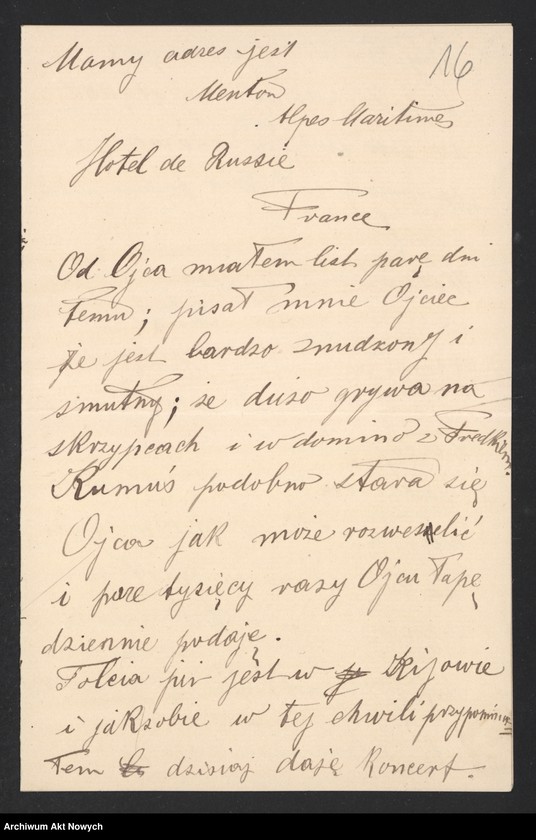 16
Mamy adres jest
Menton
Alpes Maritimes
Hotel de Russie
France
Od Ojca miałem list parę dni
temu; pisał mnie Ojciec
że jest bardzo znudzony i
smutny; że dużo grywa na
skrzypcach i w domino z Fredkiem.
Kumuś podobno stara się
Ojca jak może rozweselić
i pare tysięcy razy Ojcu łapę
dziennie podaję.
Tolcia już jest w Kijowie
i jak sobie w tej chwili przypomina-
łem dzisiaj daję Koncert.
Archiwum Akt Nowych